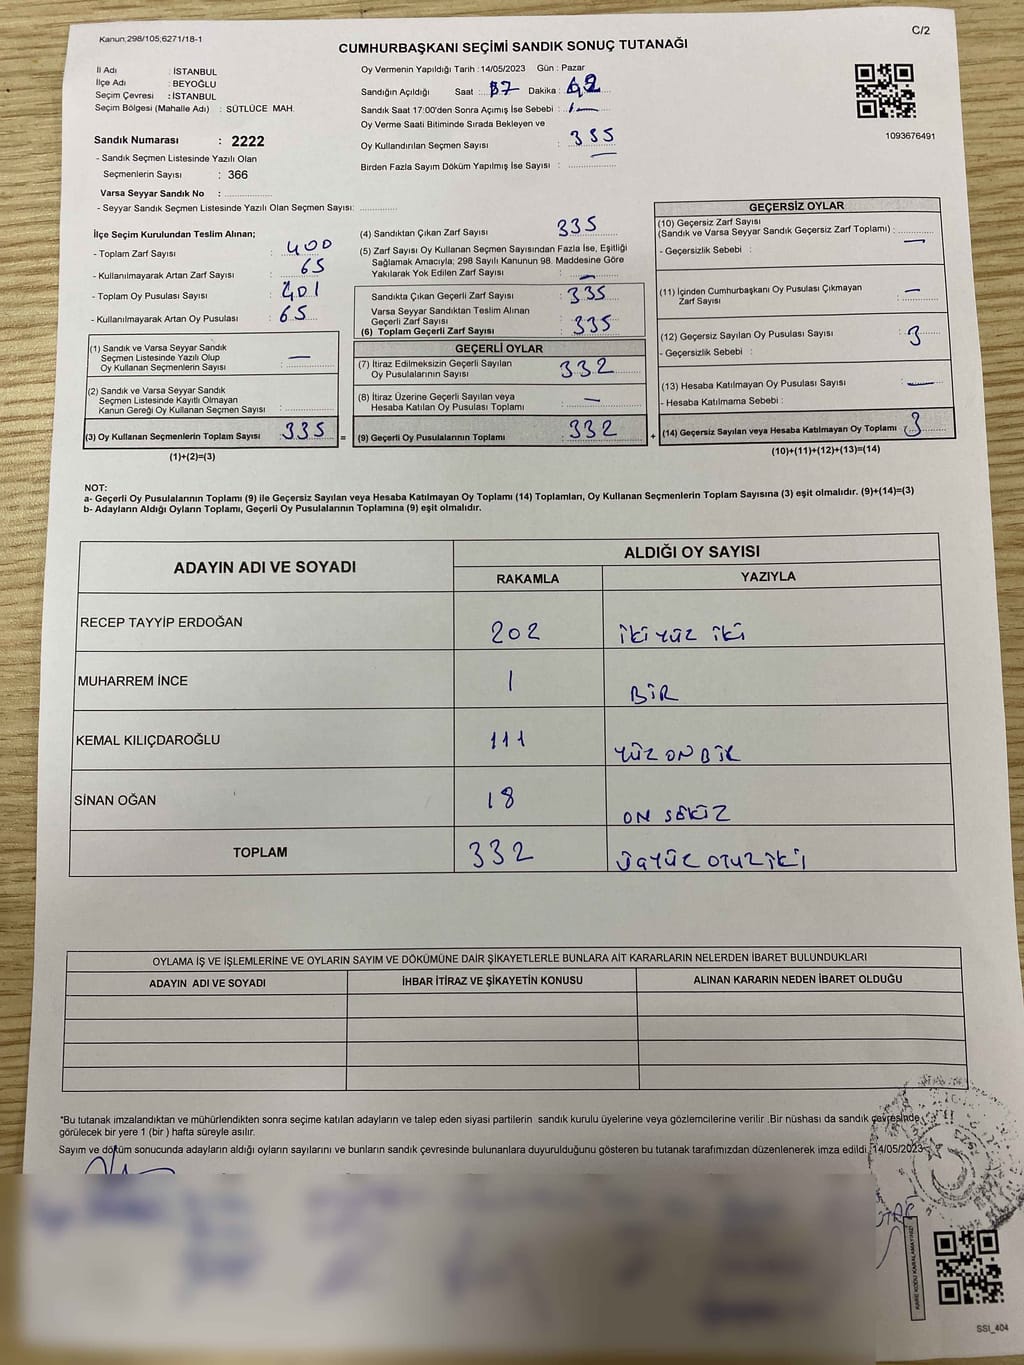 Kanun;298/105;6271/18-1
C/2
CUMHURBAŞKANI SEÇİMİ SANDIK SONUÇ TUTANAĞI
İl Adı : İSTANBUL
İlçe Adı : BEYOĞLU
Seçim Çevresi : İSTANBUL
Seçim Bölgesi (Mahalle Adı) : SÜTLÜCE MAH.
Sandık Numarası : 2222
- Sandık Seçmen Listesinde Yazılı Olan
Seçmenlerin Sayısı : 366
Varsa Seyyar Sandık No :
- Seyyar Sandık Seçmen Listesinde Yazılı Olan Seçmen Sayısı:
Oy Vermenin Yapıldığı Tarih : 14/05/2023 Gün : Pazar
Sandığın Açıldığı Saat : Dakika :
Sandık Saat 17:00'den Sonra Açımış İse Sebebi :
Oy Verme Saati Bitiminde Sırada Bekleyen ve
Oy Kullandırılan Seçmen Sayısı :
Birden Fazla Sayım Döküm Yapılmış İse Sayısı :
1093676491
İlçe Seçim Kurulundan Teslim Alınan;
- Toplam Zarf Sayısı : 400
- Kullanılmayarak Artan Zarf Sayısı : 65
- Toplam Oy Pusulası Sayısı : 401
- Kullanılmayarak Artan Oy Pusulası : 65
(1) Sandık ve Varsa Seyyar Sandık
Seçmen Listesinde Yazılı Olup
Oy Kullanan Seçmenlerin Sayısı : —
(2) Sandık ve Varsa Seyyar Sandık
Seçmen Listesinde Kayıtlı Olmayan
Kanun Gereği Oy Kullanan Seçmen Sayısı :
(3) Oy Kullanan Seçmenlerin Toplam Sayısı 335 =
(1)+(2)=(3)
(4) Sandıktan Çıkan Zarf Sayısı : 335
(5) Zarf Sayısı Oy Kullanan Seçmen Sayısından Fazla İse, Eşitliği
Sağlamak Amacıyla; 298 Sayılı Kanunun 98. Maddesine Göre
Yakılarak Yok Edilen Zarf Sayısı : —
Sandıkta Çıkan Geçerli Zarf Sayısı : 335
Varsa Seyyar Sandıktan Teslim Alınan
Geçerli Zarf Sayısı :
(6) Toplam Geçerli Zarf Sayısı : 335
GEÇERLİ OYLAR
(7) İtiraz Edilmeksizin Geçerli Sayılan
Oy Pusulalarının Sayısı : 332
(8) İtiraz Üzerine Geçerli Sayılan veya
Hesaba Katılan Oy Pusulası Toplamı : —
(9) Geçerli Oy Pusulalarının Toplamı : 332 +
GEÇERSİZ OYLAR
(10) Geçersiz Zarf Sayısı
(Sandık ve Varsa Seyyar Sandık Geçersiz Zarf Toplamı) : —
- Geçersizlik Sebebi :
(11) İçinden Cumhurbaşkanı Oy Pusulası Çıkmayan
Zarf Sayısı : —
(12) Geçersiz Sayılan Oy Pusulası Sayısı : 3
- Geçersizlik Sebebi :
(13) Hesaba Katılmayan Oy Pusulası Sayısı : —
- Hesaba Katılmama Sebebi :
(14) Geçersiz Sayılan veya Hesaba Katılmayan Oy Toplamı : 3
(10)+(11)+(12)+(13)=(14)
NOT:
a- Geçerli Oy Pusulalarının Toplamı (9) ile Geçersiz Sayılan veya Hesaba Katılmayan Oy Toplamı (14) Toplamları, Oy Kullanan Seçmenlerin Toplam Sayısına (3) eşit olmalıdır. (9)+(14)=(3)
b- Adayların Aldığı Oyların Toplamı, Geçerli Oy Pusulalarının Toplamına (9) eşit olmalıdır.
ADAYIN ADI VE SOYADI
ALDIĞI OY SAYISI
RAKAMLA YAZIYLA
RECEP TAYYİP ERDOĞAN 202 iki yüz iki
MUHARREM İNCE 1 BİR
KEMAL KILIÇDAROĞLU 111 YÜZ ON BİR
SİNAN OĞAN 18 ON SEKİZ
TOPLAM 332 ÜÇYÜZ OTUZ İKİ
OYLAMA İŞ VE İŞLEMLERİNE VE OYLARIN SAYIM VE DÖKÜMÜNE DAİR ŞİKAYETLERLE BUNLARA AİT KARARLARIN NELERDEN İBARET BULUNDUKLARI
ADAYIN ADI VE SOYADI İHBAR İTİRAZ VE ŞİKAYETİN KONUSU ALINAN KARARIN NEDEN İBARET OLDUĞU
*Bu tutanak imzalandıktan ve mühürlendikten sonra seçime katılan adayların ve talep eden siyasi partilerin sandık kurulu üyelerine veya gözlemcilerine verilir .Bir nüshası da sandık çevresinde
görülecek bir yere 1 (bir ) hafta süreyle asılır.
Sayım ve döküm sonucunda adayların aldığı oyların sayılarını ve bunların sandık çevresinde bulunanlara duyurulduğunu gösteren bu tutanak tarafımızdan düzenlenerek imza edildi.14/05/2023
KARE KODU KARALAMAYINIZ!
SSI_404